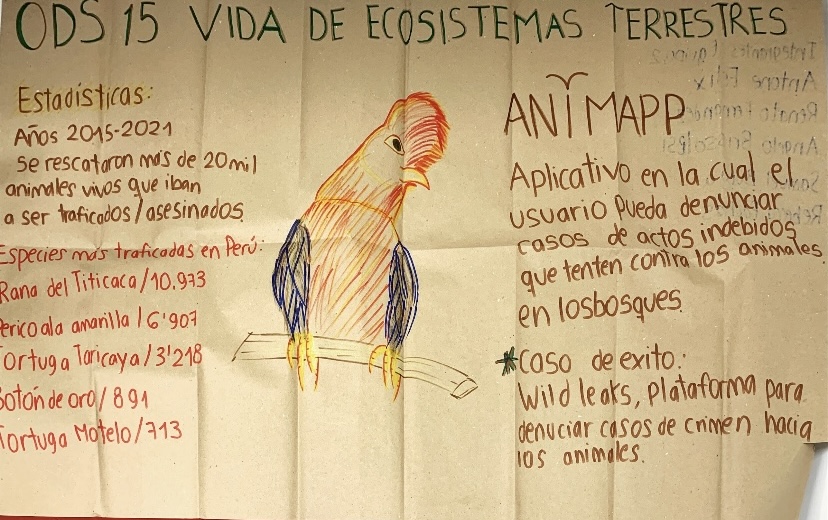 ODS 15 VIDA DE ECOSISTEMAS TERRESTRES
Estadísticas:
Años 2015-2021
Se rescataron más de 20mil
animales vivos que iban
a ser traficados/asesinados.
Especies más traficadas en Perú:
Rana del Titicaca/10.973
Perico ala amarilla/6'907
Tortuga Taricaya/3'218
Botón de oro/891
Tortuga Motelo/713
ANIMAPP
Aplicativo en la cual el
usuario pueda denunciar
casos de actos indebidos
que tenten contra los animales
en losbosques.
*Caso de exito:
Wild leaks, plataforma para
denuciar casos de crimen hacia
los animales.
Integrantes
Antone Felix
Renato
Angelo